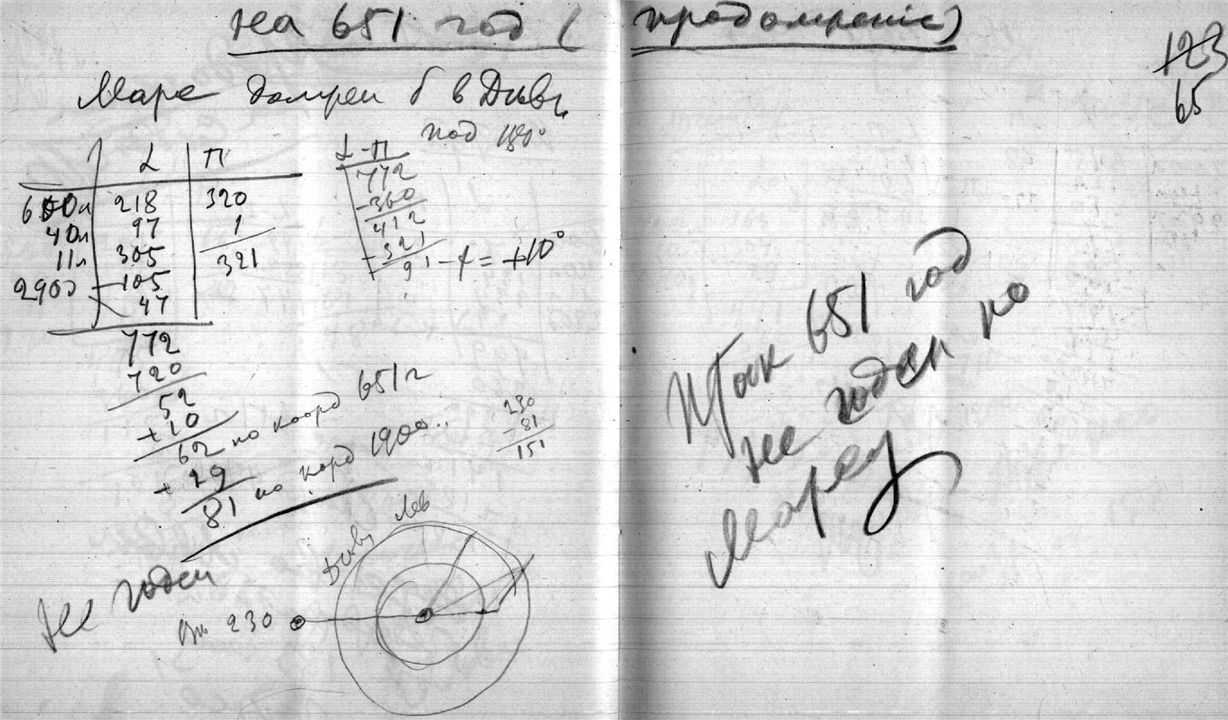 на 651 год (продолженіе)
123
65
Марс должен б в Деве
под 180°
L П
L-П
600л 218 320
40л 97 1
11л 305 321
290д 105
47
772
720
52
+10
62 по коорд 651 г
+19
81 по коорд 1900..
772
-360
412
-321
91 -f = +10°
230
-81
151
Не годен
Дева Лев
230
Итак 651 год
не годен по
Марсу